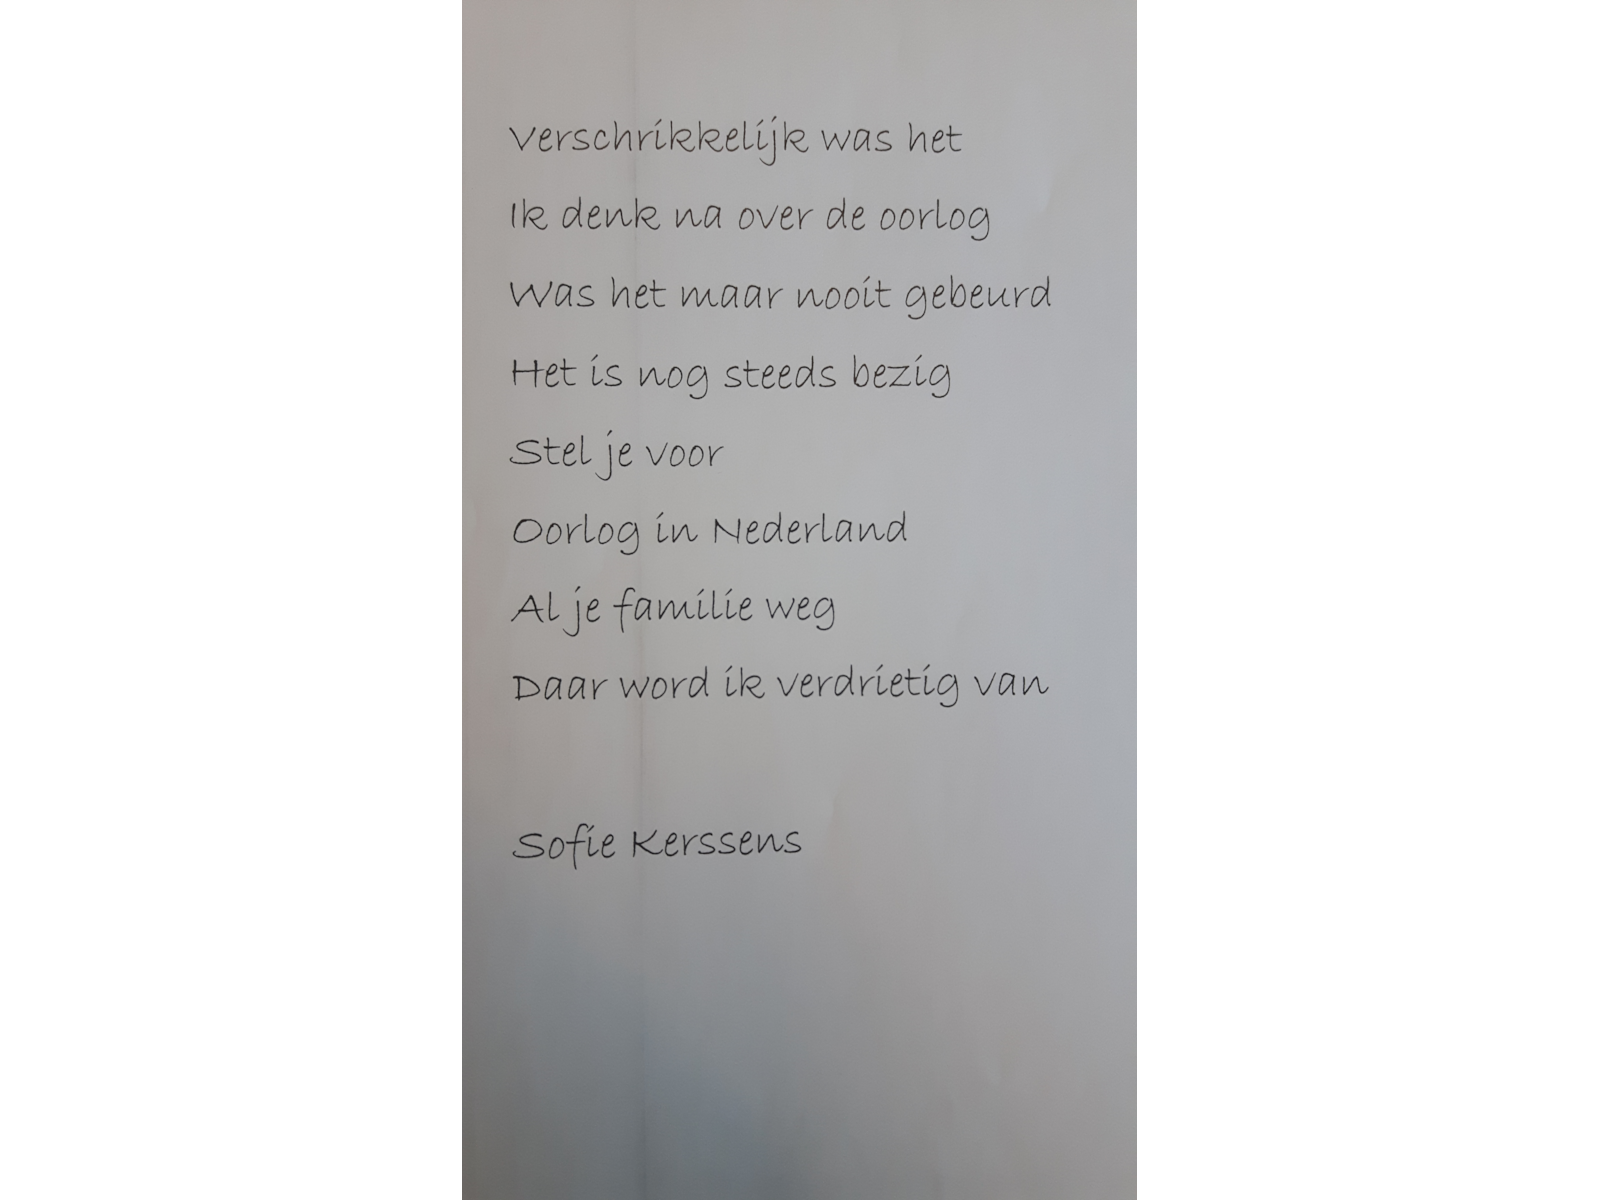 Verschrikkelijk was het
Ik denk na over de oorlog
Was het maar nooit gebeurd
Het is nog steeds bezig
Stel je voor
Oorlog in Nederland
Al je familie weg
Daar word ik verdrietig van
Sofie Kerssens